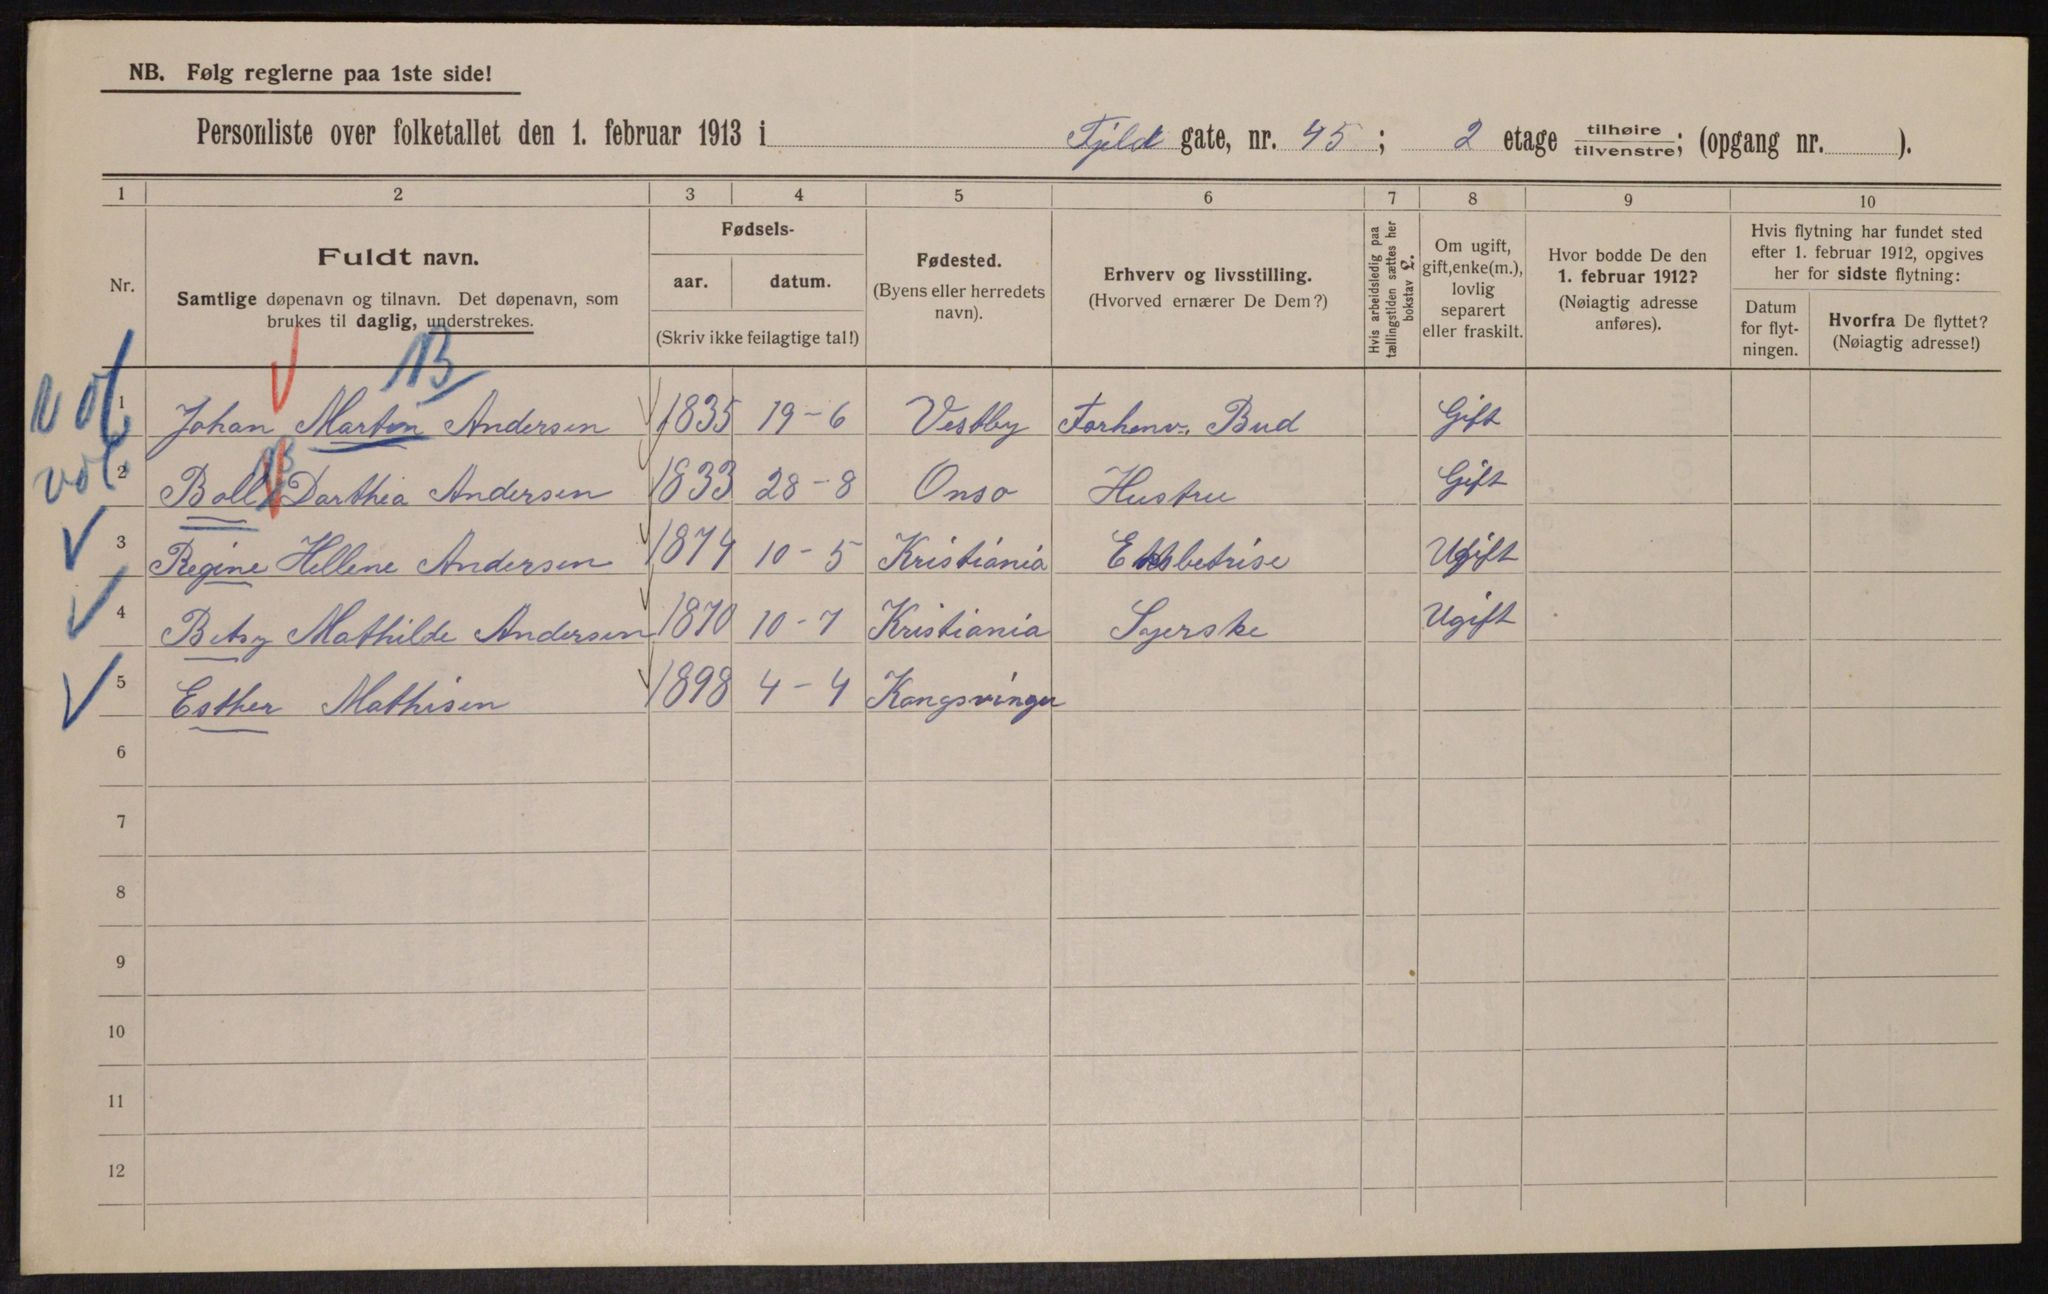 NB. Følg reglerne paa 1ste side!
Personliste over folketallet den 1. februar 1913 i Fjeld gate, nr. 45 ; 2 etage tilhøire tilvenstre; (opgang nr. ).
1 2 3 4 5 6 7 8 9 10
Nr.
Fuldt navn.
Samtlige døpenavn og tilnavn. Det døpenavn, som
brukes til daglig, understrekes.
Fødsels-
aar. datum.
(Skriv ikke feilagtige tal!)
Fødested.
(Byens eller herredets
navn).
Erhverv og livsstilling.
(Hvorved ernærer De Dem?)
Hvis arbeidsledig paa
tællingstiden sættes her
bokstav L.
Om ugift,
gift, enke(m.),
lovlig
separert
eller fraskilt.
Hvor bodde De den
1. februar 1912?
(Nøiagtig adresse
anføres).
Hvis flytning har fundet sted
efter 1. februar 1912, opgives
her for sidste flytning:
Datum
for flyt-
ningen.
Hvorfra De flyttet?
(Nøiagtig adresse!)
1 Johan Martin Andersen 1835 19-6 Vestby Forhenv. Bud Gift
2 Dorthea Andersen 1833 28-8 Onso Hustru Gift
3 Regine Hellene Andersen 1874 10-5 Kristiania Ugift
4 Betsy Mathilde Andersen 1870 10-7 Kristiania Syerske Ugift
5 Esther Mathisen 1898 4-4 Kongsvinger
6
7
8
9
10
11
12